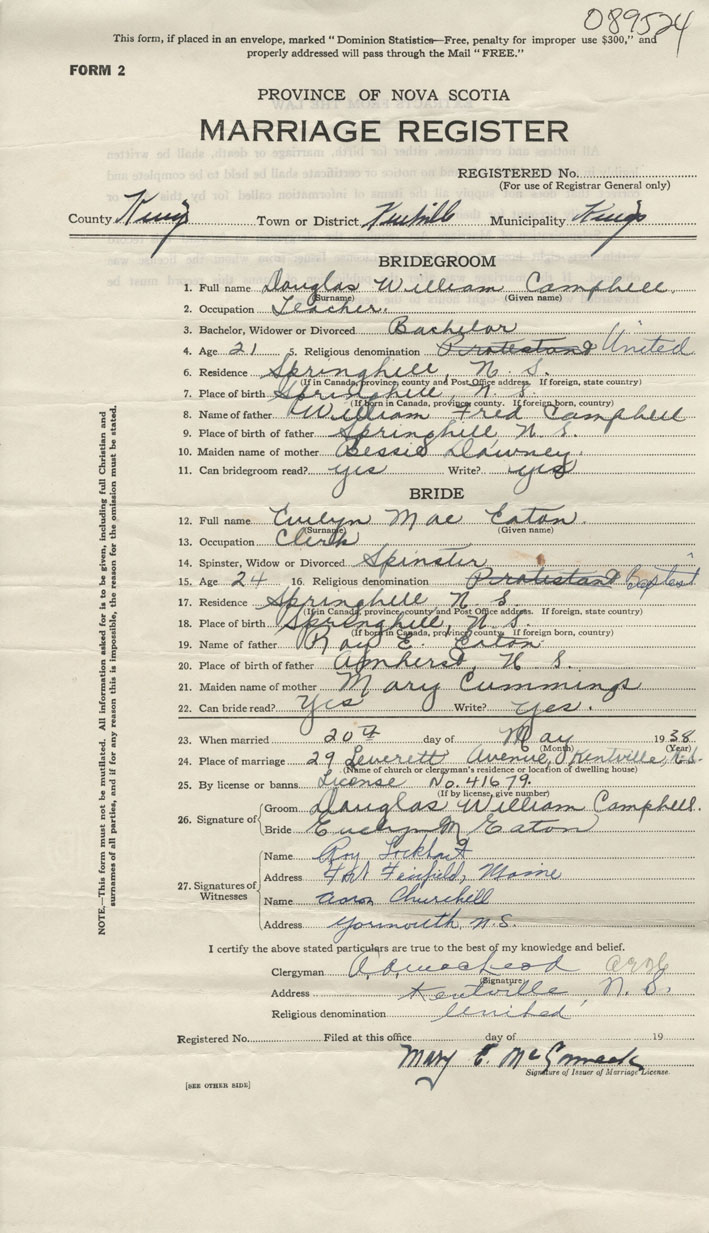 089524
This form, if placed in an envelope, marked "Dominion Statistics—Free, penalty for improper use $300," and
properly addressed will pass through the Mail "FREE."
FORM 2
PROVINCE OF NOVA SCOTIA
MARRIAGE REGISTER
REGISTERED No.
(For use of Registrar General only)
County Kings Town or District Kentville Municipality Kings
BRIDEGROOM
1. Full name Douglas William Campbell
(Surname) (Given name)
2. Occupation Teacher.
3. Bachelor, Widower or Divorced Bachelor
4. Age 21 5. Religious denomination Protestant United
6. Residence Springhill, N. S.
(If in Canada, province, county and Post Office address. If foreign, state country)
7. Place of birth Springhill, N. S.
(If born in Canada, province, county. If foreign born, country)
8. Name of father William Fred Campbell
9. Place of birth of father Springhill N. S.
10. Maiden name of mother Bessie Downey.
11. Can bridegroom read? yes Write? yes
BRIDE
12. Full name Evelyn Mae Eaton.
(Surname) (Given name)
13. Occupation Clerk
14. Spinster, Widow or Divorced Spinster
15. Age 24 16. Religious denomination Protestant Baptist
17. Residence Springhill N S
(If in Canada, province, county and Post Office address. If foreign, state country)
18. Place of birth Springhill, N. S.
(If born in Canada, province, county. If foreign born, country)
19. Name of father Roy E. Eaton
20. Place of birth of father Amherst, N. S.
21. Maiden name of mother Mary Cummings
22. Can bride read? Yes Write? yes.
23. When married 20th day of May 1938.
(Month) (Year)
24. Place of marriage 29 Leverett Avenue, Kentville, N.S.
(Name of church or clergyman's residence or location of dwelling house)
25. By license or banns License No. 41679.
(If by license, give number)
26. Signature of Groom Douglas William Campbell.
Bride Evelyn M Eaton
27. Signatures of Witnesses
Name Roy Lockhart
Address Fort Fairfield, Maine
Name Aaron Churchill
Address Yarmouth N.S.
I certify the above stated particulars are true to the best of my knowledge and belief.
Clergyman
(Signature)
Address Kentville, N. S.
Religious denomination United
Registered No. Filed at this office day of 19
Mary E. McCormack
Signature of Issuer of Marriage License.
[SEE OTHER SIDE]
NOTE,—This form must not be mutilated. All information asked for is to be given, including full Christian and
surnames of all parties, and if for any reason this is impossible, the reason for the omission must be stated.